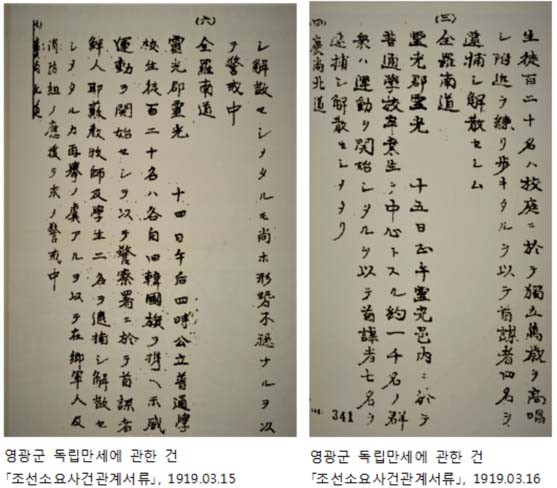 (六)
シ解散セシメタルモ尚ホ形勢不穏ナルヲ以
テ警戒中
全羅南道
靈光郡靈光 十四日午后四時公立普通學
校生徒百二十名ハ各自旧韓國旗ヲ携ヘ示威
運動ヲ開始セシヲ以テ警察署ニ於テ首謀者
鮮人耶蘇敎牧師及学生二名ヲ逮捕シ解散セ
シメタルカ再擧ノ虞アルヲ以テ在鄕軍人及
消防組ノ應援ヲ求メ警戒中
영광군 독립만세에 관한 건
「조선소요사건관계서류」, 1919.03.15
生徒百二十名ハ校庭ニ於テ獨立萬歳ヲ高唱
シ附近ヲ練リ歩キタルヲ以テ首謀者四名ヲ
逮捕シ解散セシム
(三)
全羅南道
靈光郡靈光 十五日正午靈光邑内ニ於テ
普通學校卒業生ヲ中心トスル約一千名ノ群
衆ハ運動ヲ開始シタルヲ以テ首謀者七名ヲ
逮捕シ解散セシメタリ
(四)慶尚北道
341
영광군 독립만세에 관한 건
「조선소요사건관계서류」, 1919.03.16